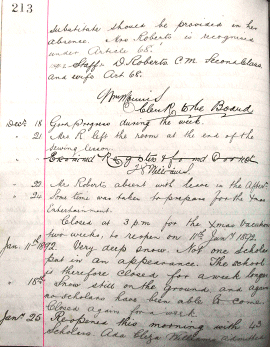 213
substitute should be provided in her
absence. Mrs Roberts is recognised
under Article 68.
Staff:- D Roberts C M Second Class
and wife Art 68.
Wm Morris
Clerk to the Board
Decr 18 Good Progress during the week.
" 21 Mrs R left the room at the end of the
sewing lesson.
Examined Registers & found Correct
" 22 Mrs Roberts absent with leave in the Aftern.
" 24 Some time was taken to prepare for the Xmas
Entertainment.
Closed at 3 pm for the Xmas Vacation
two weeks, to reopen on 11th Jany 1892
Jan 11th 1892. Very deep snow. Not one scholar
put in an appearance. The school
is therefore closed for a week longer
" 18th Snow still on the ground, and again
no scholars have been able to come.
Closed again for a week.
Jany 25 Reopened this morning with 43
Scholars. Ada Eliza Williams admitted